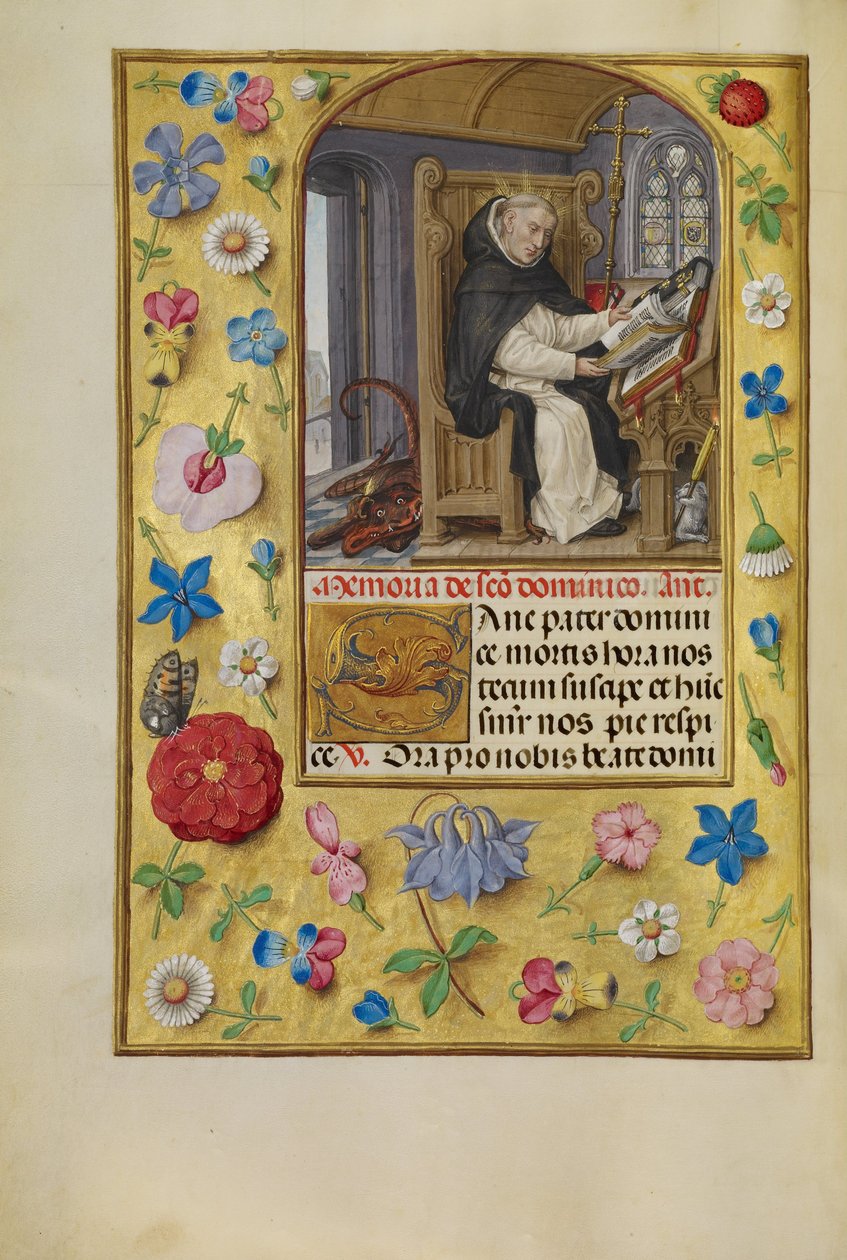 Memoria de sc̄o dominico. Ant.
Ane pater domini
ce mortis hora nos
tecum suscipe et hūc
sm̄r nos pie respi
ce V. Ora pro nobis beate domi